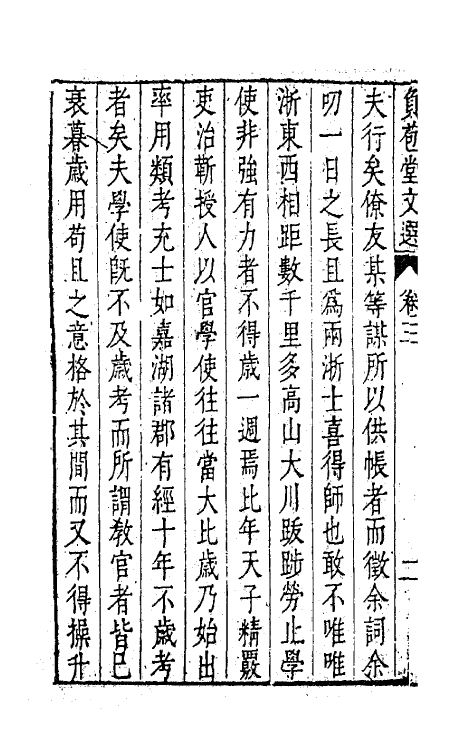 負苞堂文選 卷三 二
夫行矣僚友某等謀所以供帳者而徵余詞余
叨一日之長且爲兩浙士喜得師也敢不唯唯
浙東西相距數千里多高山大川跋踄勞止學
使非強有力者不得歲一週焉比年天子精覈
吏治靳授人以官學使往往當大比歲乃始出
率用類考充士如嘉湖諸郡有經十年不歲考
者矣夫學使旣不及歲考而所謂敎官者皆已
衰暮歲用苟且之意格於其間而又不得操升